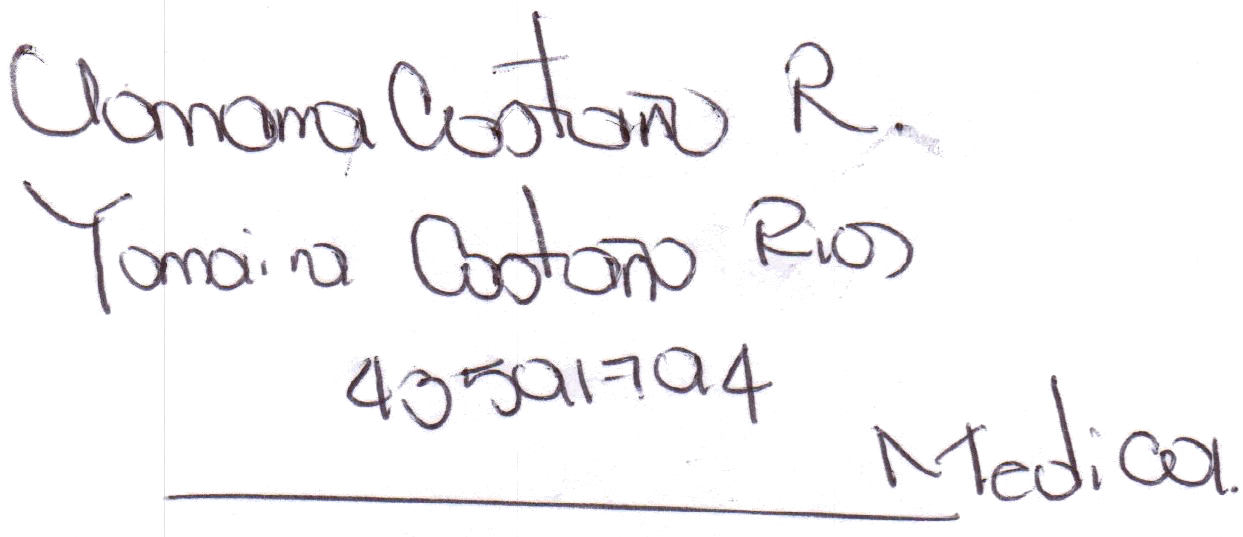 Yomaira Castaño R.
Yomaira Castaño Rios
43591794
Medica.